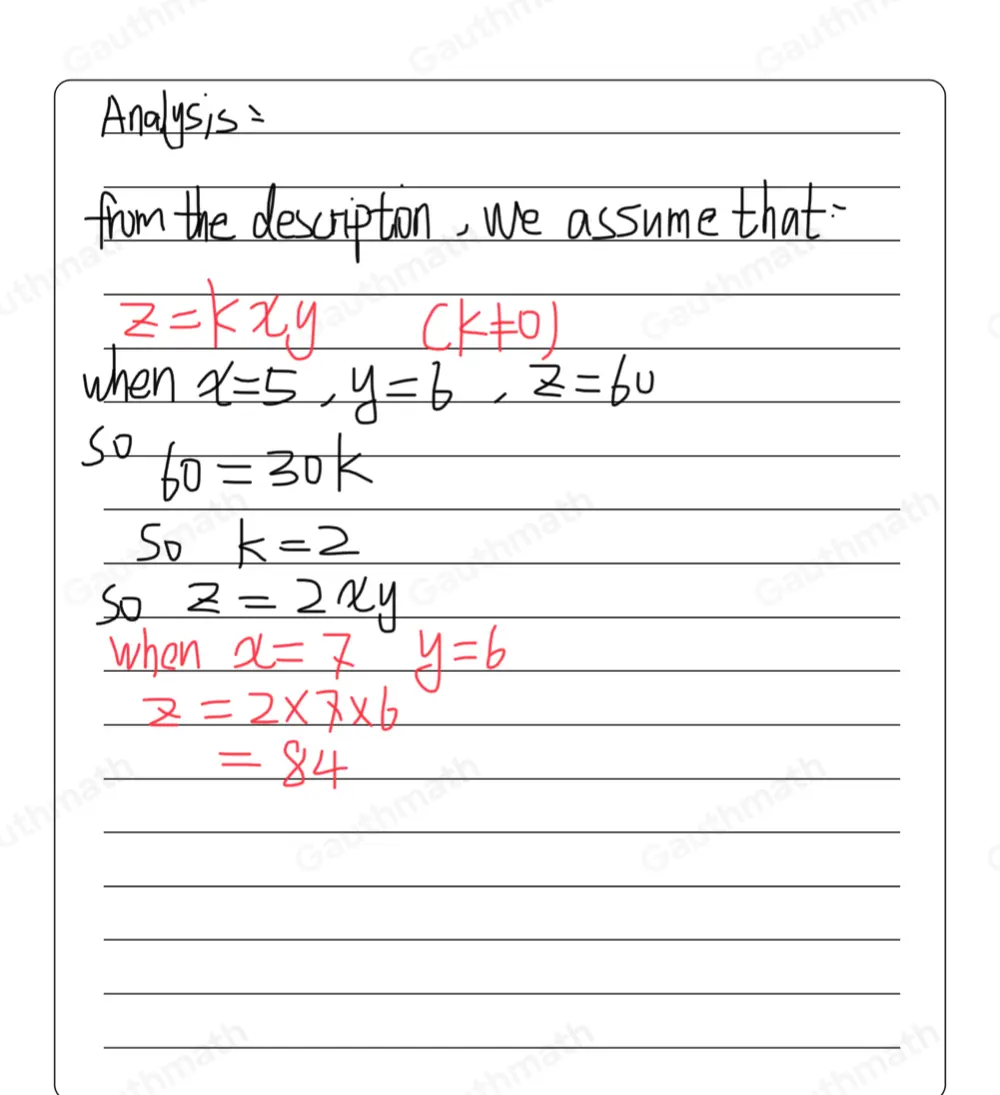 Analysis:
from the descripton, we assume that:
z=kxy (k≠0)
when x=5, y=6, z=60
so 60=30k
so k=2
so z=2xy
when x=7 y=6
z=2×7×6
=84
Gauthmath